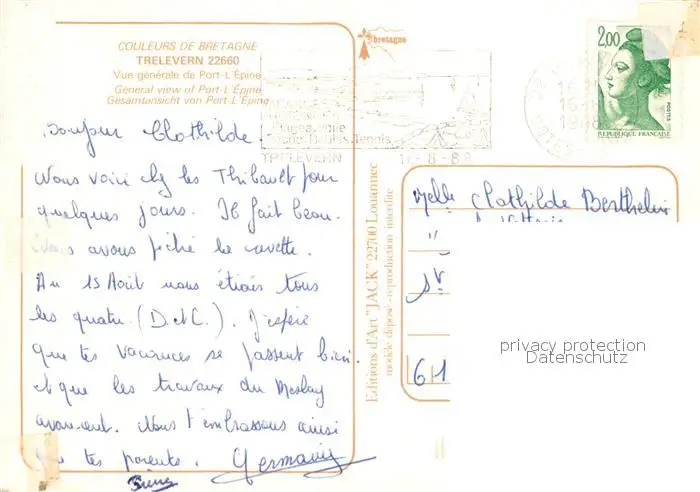 COULEURS DE BRETAGNE
TRELEVERN 22660
Vue générale de Port-L'Épine
General view of Port-L'Épine
Gesamtansicht von Port-L'Épine
bretagne
TRELEVERN
17-8-89
2,00
POSTES
REPUBLIQUE FRANÇAISE
Bonjour Clothilde
Nous voici chez les Thibault pour
quelques jours. Il fait beau.
Nous avons pêché la crevette.
Au 15 Août nous étions tous
les quatre (D. et C.). J'espère
que tes vacances se passent bien
et que les travaux du Meslay
avancent. Nous t'embrassons ainsi
que tes parents. Germain
Editions d'Art "JACK" 22700 Louannec
modèle déposé - reproduction interdite
Melle Clothilde Berthelin
61
privacy protection
Datenschutz